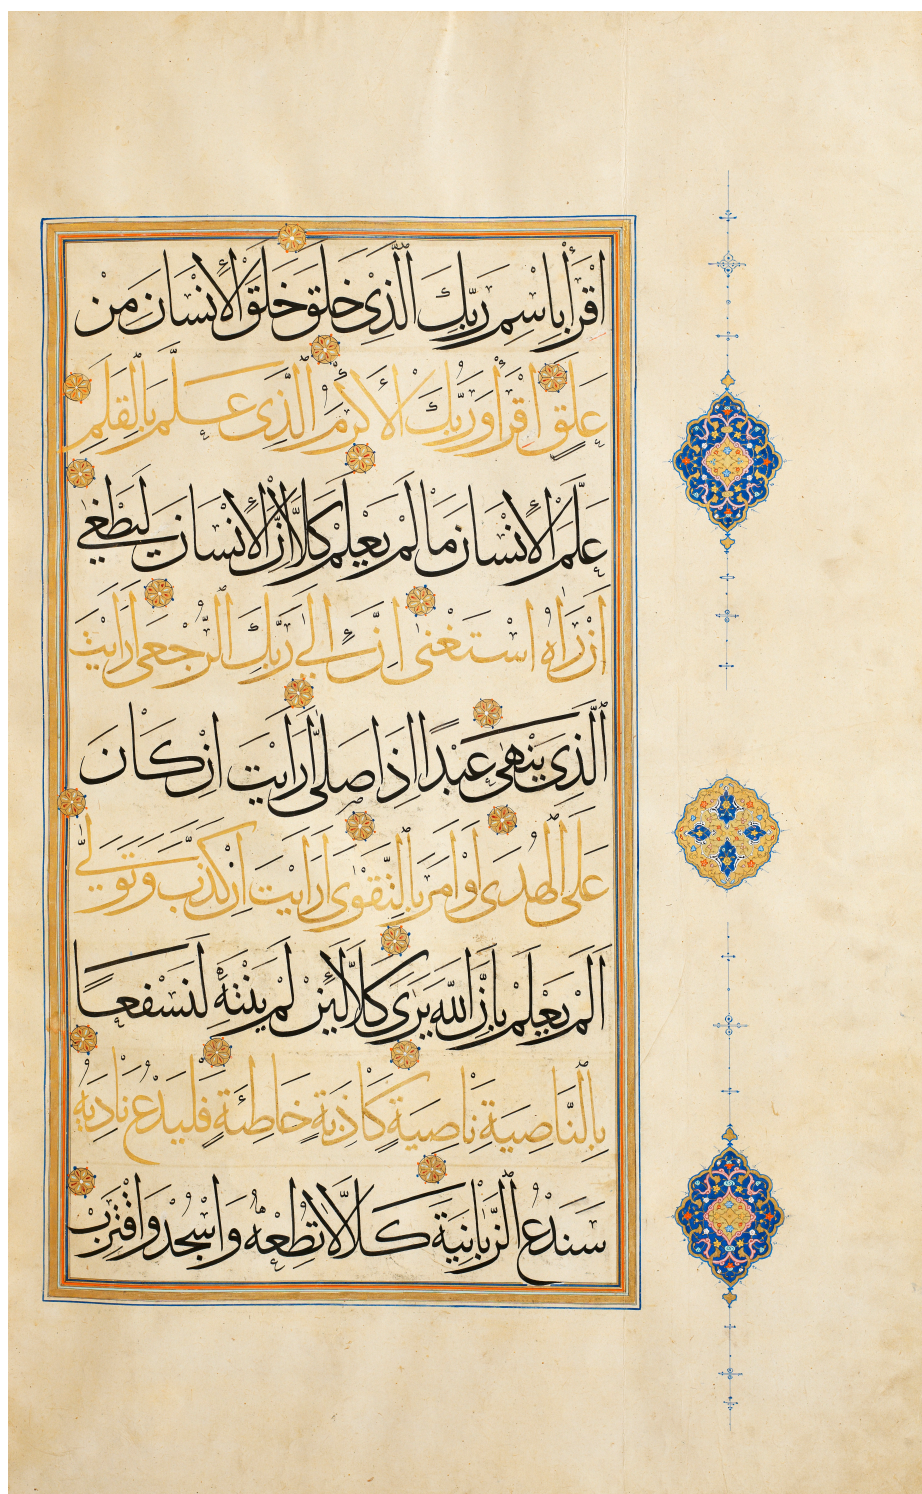 اقْرَأْ بِاسْمِ رَبِّكَ الَّذِي خَلَقَ خَلَقَ الْإِنْسَانَ مِنْ
عَلَقٍ اقْرَأْ وَرَبُّكَ الْأَكْرَمُ الَّذِي عَلَّمَ بِالْقَلَمِ
عَلَّمَ الْإِنْسَانَ مَا لَمْ يَعْلَمْ كَلَّا إِنَّ الْإِنْسَانَ لَيَطْغَى
أَنْ رَآهُ اسْتَغْنَى إِنَّ إِلَى رَبِّكَ الرُّجْعَى أَرَأَيْتَ
الَّذِي يَنْهَى عَبْدًا إِذَا صَلَّى أَرَأَيْتَ إِنْ كَانَ
عَلَى الْهُدَى أَوْ أَمَرَ بِالتَّقْوَى أَرَأَيْتَ إِنْ كَذَّبَ وَتَوَلَّى
أَلَمْ يَعْلَمْ بِأَنَّ اللَّهَ يَرَى كَلَّا لَئِنْ لَمْ يَنْتَهِ لَنَسْفَعًا
بِالنَّاصِيَةِ نَاصِيَةٍ كَاذِبَةٍ خَاطِئَةٍ فَلْيَدْعُ نَادِيَهُ
سَنَدْعُ الزَّبَانِيَةَ كَلَّا لَا تُطِعْهُ وَاسْجُدْ وَاقْتَرِبْ